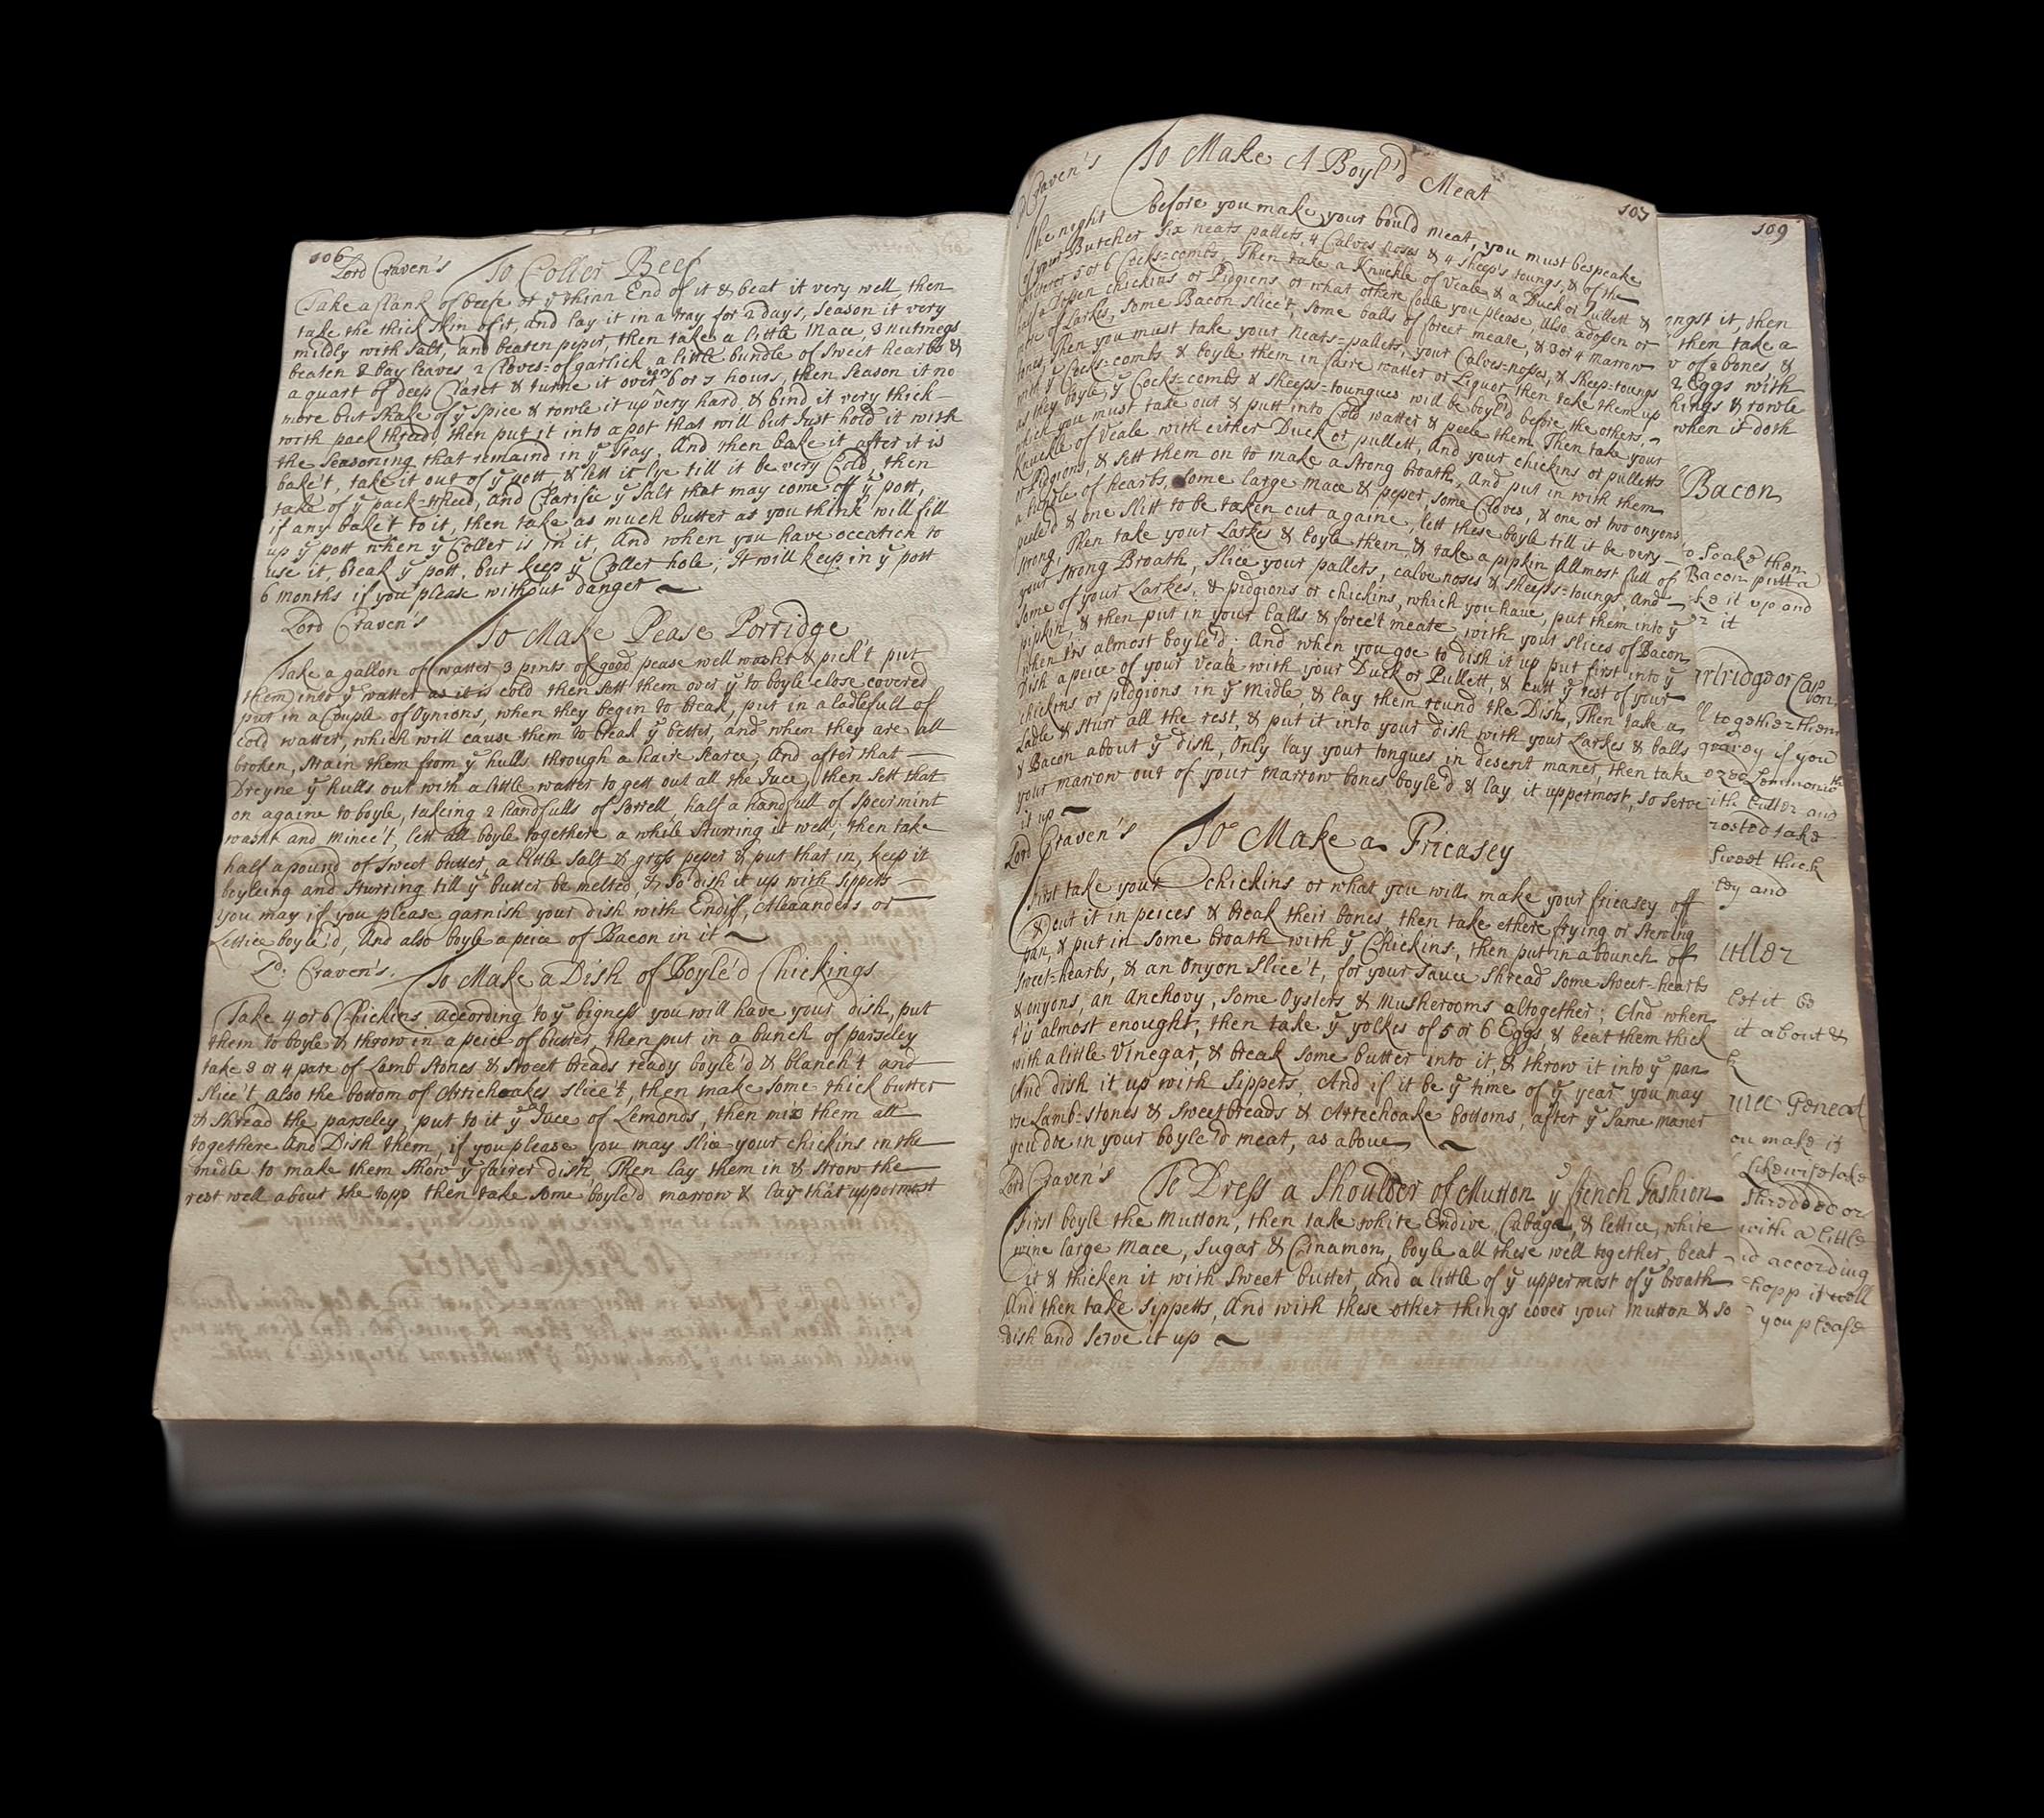 106
Lord Craven's To Coller Beef
Take a flank of beefe at ye thinn End of it & beat it very well, then
take the thick skin of it, and lay it in a tray for 2 days, season it very
mildly with salt, and beaten peper, then take a little Mace, 3 nutmegs
beaten & bay leaves 2 Cloves of garlick a little bundle of sweet hearbs &
a quart of deep Claret & turne it over 6 or 7 hours, then season it no
more but shake of ye spice & rowle it up very hard, & bind it very thick
with pack thread, then put it into a pot that will but Just hold it with
the seasoning that remaind in ye Tray, And then bake it after it is
bake't, take it out of ye pott, & sett it lye till it be very Cold, then
take of ye pack-thred, and Clarifie ye salt that may come off ye pott,
if any bake't to it, then take as much butter as you think will fill
up ye pott when ye Coller is in it, And when you have occation to
use it, break ye pott, but keep ye Coller hole, It will keep in ye pott
6 months if you please without danger
Lord Craven's
To Make Pease Porridge
Take a gallon of watter 3 pints of good pease well washt & pick't put
them into ye watter as it is cold then sett them over ye to boyle close covered
put in a Couple of Oynions, when they begin to break, put in a ladlefull of
cold watter, which will cause them to break ye better, and when they are all
broken, strain them from ye hulls, through a haire searce, And after that
Dreyne ye hulls out with a little watter to gett out all the Juce, then sett that
on againe to boyle, takeing 2 handfulls of Sorrell, half a handfull of Spearmint
washt and mince't, lett all boyle togethere a while sturring it well, then take
half a pound of sweet butter, a little salt & gross peper & put that in, keep it
boyleing and sturring till ye butter be melted, & so dish it up with sippets
you may if you please garnish your dish with Endiff, Alexanders or
Lettice boyle'd, And also boyle a peice of Bacon in it
Ld: Craven's. To Make a Dish of Boyle'd Chickings
Take 4 or 6 Chickins, according to ye bigness you will have your dish, put
them to boyle & throw in a peice of butter, then put in a bunch of parseley
take 3 or 4 pare of Lamb stones & sweet breads ready boyle'd & blanch't and
slice't, also the bottom of Artichoakes slice't, then make some thick butter
& shread the parseley, put to it ye Juce of Lemonds, then mix them all
togethere And Dish them, if you please you may slice your chickins in the
midle to make them show ye fairer dish, Then lay them in & strow the
rest well about the topp then take some boyle'd marrow & lay that uppermost
107
Craven's To Make A Boyl'd Meat
The night before you make your bould meat, you must bespeake
of your Butcher six neats pallets, 4 Calves noses & 4 sheep's toungs, & of the
5 or 6 Cocks-combs, Then take a Knuckle of veale & a Duck or Pullett &
half a Dossen chickins or Pidgiens or what othere foule you please, also adossen or
more of Larkes, some Bacon slice't, some balls of forcet meate, & 3 or 4 marrow
bones, Then you must take your neats-pallets, your Calves-noses, & sheep-toungs
with ye Cocks-combs & boyle them in faire watter or Liquor then take them up
as they boyle, ye Cocks-combs & sheeps-toungues will be boyl'd before the others,
which you must take out & putt into Cold watter & peele them, Then take your
Knuckle of Veale with either Duck or pullett, And your chickins or pulletts
or Pidgions, & sett them on to make a strong broath, And put in with them
a bundle of hearbs, some large mace & peper, some Cloves, & one or two onyons
peel'd & one slitt to be taken out againe, lett these boyle till it be very
strong, Then take your Larkes & boyle them, & take a pipkin allmost full of
your strong Broath, slice your pallets, calve noses & sheeps-toungs, And
some of your Larkes, & pidgions or chickins, which you have, put them into ye
pipkin, & then put in your balls & force't meate, with your slices of Bacon
when its almost boyle'd; And when you goe to dish it up put first into ye
Dish a peice of your veale with your Duck or Pullett, & cutt ye rest of your
chickins or pidgions in ye midle, & lay them round the Dish, Then take a
Ladle & sturr all the rest, & put it into your dish with your Larkes & balls
& Bacon about ye dish, Only lay your tongues in desent maner, then take
your marrow out of your marrow bones boyle'd & lay it uppermost, so serve
it up
Lord Craven's To Make a Fricasey
First take your chickins or what you will make your fricasey off
& cut it in peices & break their bones, then take ethere frying or stewing
pan, & put in some broath with ye Chickins, then put in a bounch off
sweet-hearbs, & an Onyon slice't, for your sauce shread some sweet-hearbs
& onyons, an Anchovy, some Oysters & musherooms altogether; And when
t'is almost enought, then take ye yolkes of 5 or 6 Eggs, & beat them thick
with a little Vinegar, & break some butter into it, & throw it into ye pan
And dish it up with sippets, And if it be ye time of ye year you may
use Lamb-stones & sweetbreads & Artechoake bottoms, after ye same maner
you doe in your boyle'd meat, as above
Lord Craven's To Dress a Shoulder of Mutton ye french Fashion
First boyle the Mutton, then take white Endive, Cabage, & lettice, white
wine large Mace, sugar & Cinamon, boyle all these well together, beat
it & thicken it with sweet butter, and a little of ye uppermost of ye broath
And then take sippetts, And with these other things cover your mutton & so
dish and serve it up
109
ongst it, then
then take a
of 2 bones, &
2 Eggs with
& rowle
when it doth
Bacon
to soake then
Bacon putt a
it up and
it
or Capon
together then
gravey if you
Lemmon
with butter and
rosted take
sweet thick
and
let it be
it about &
you make it
Likewise take
shredded or
with a little
according
chopp it well
you please